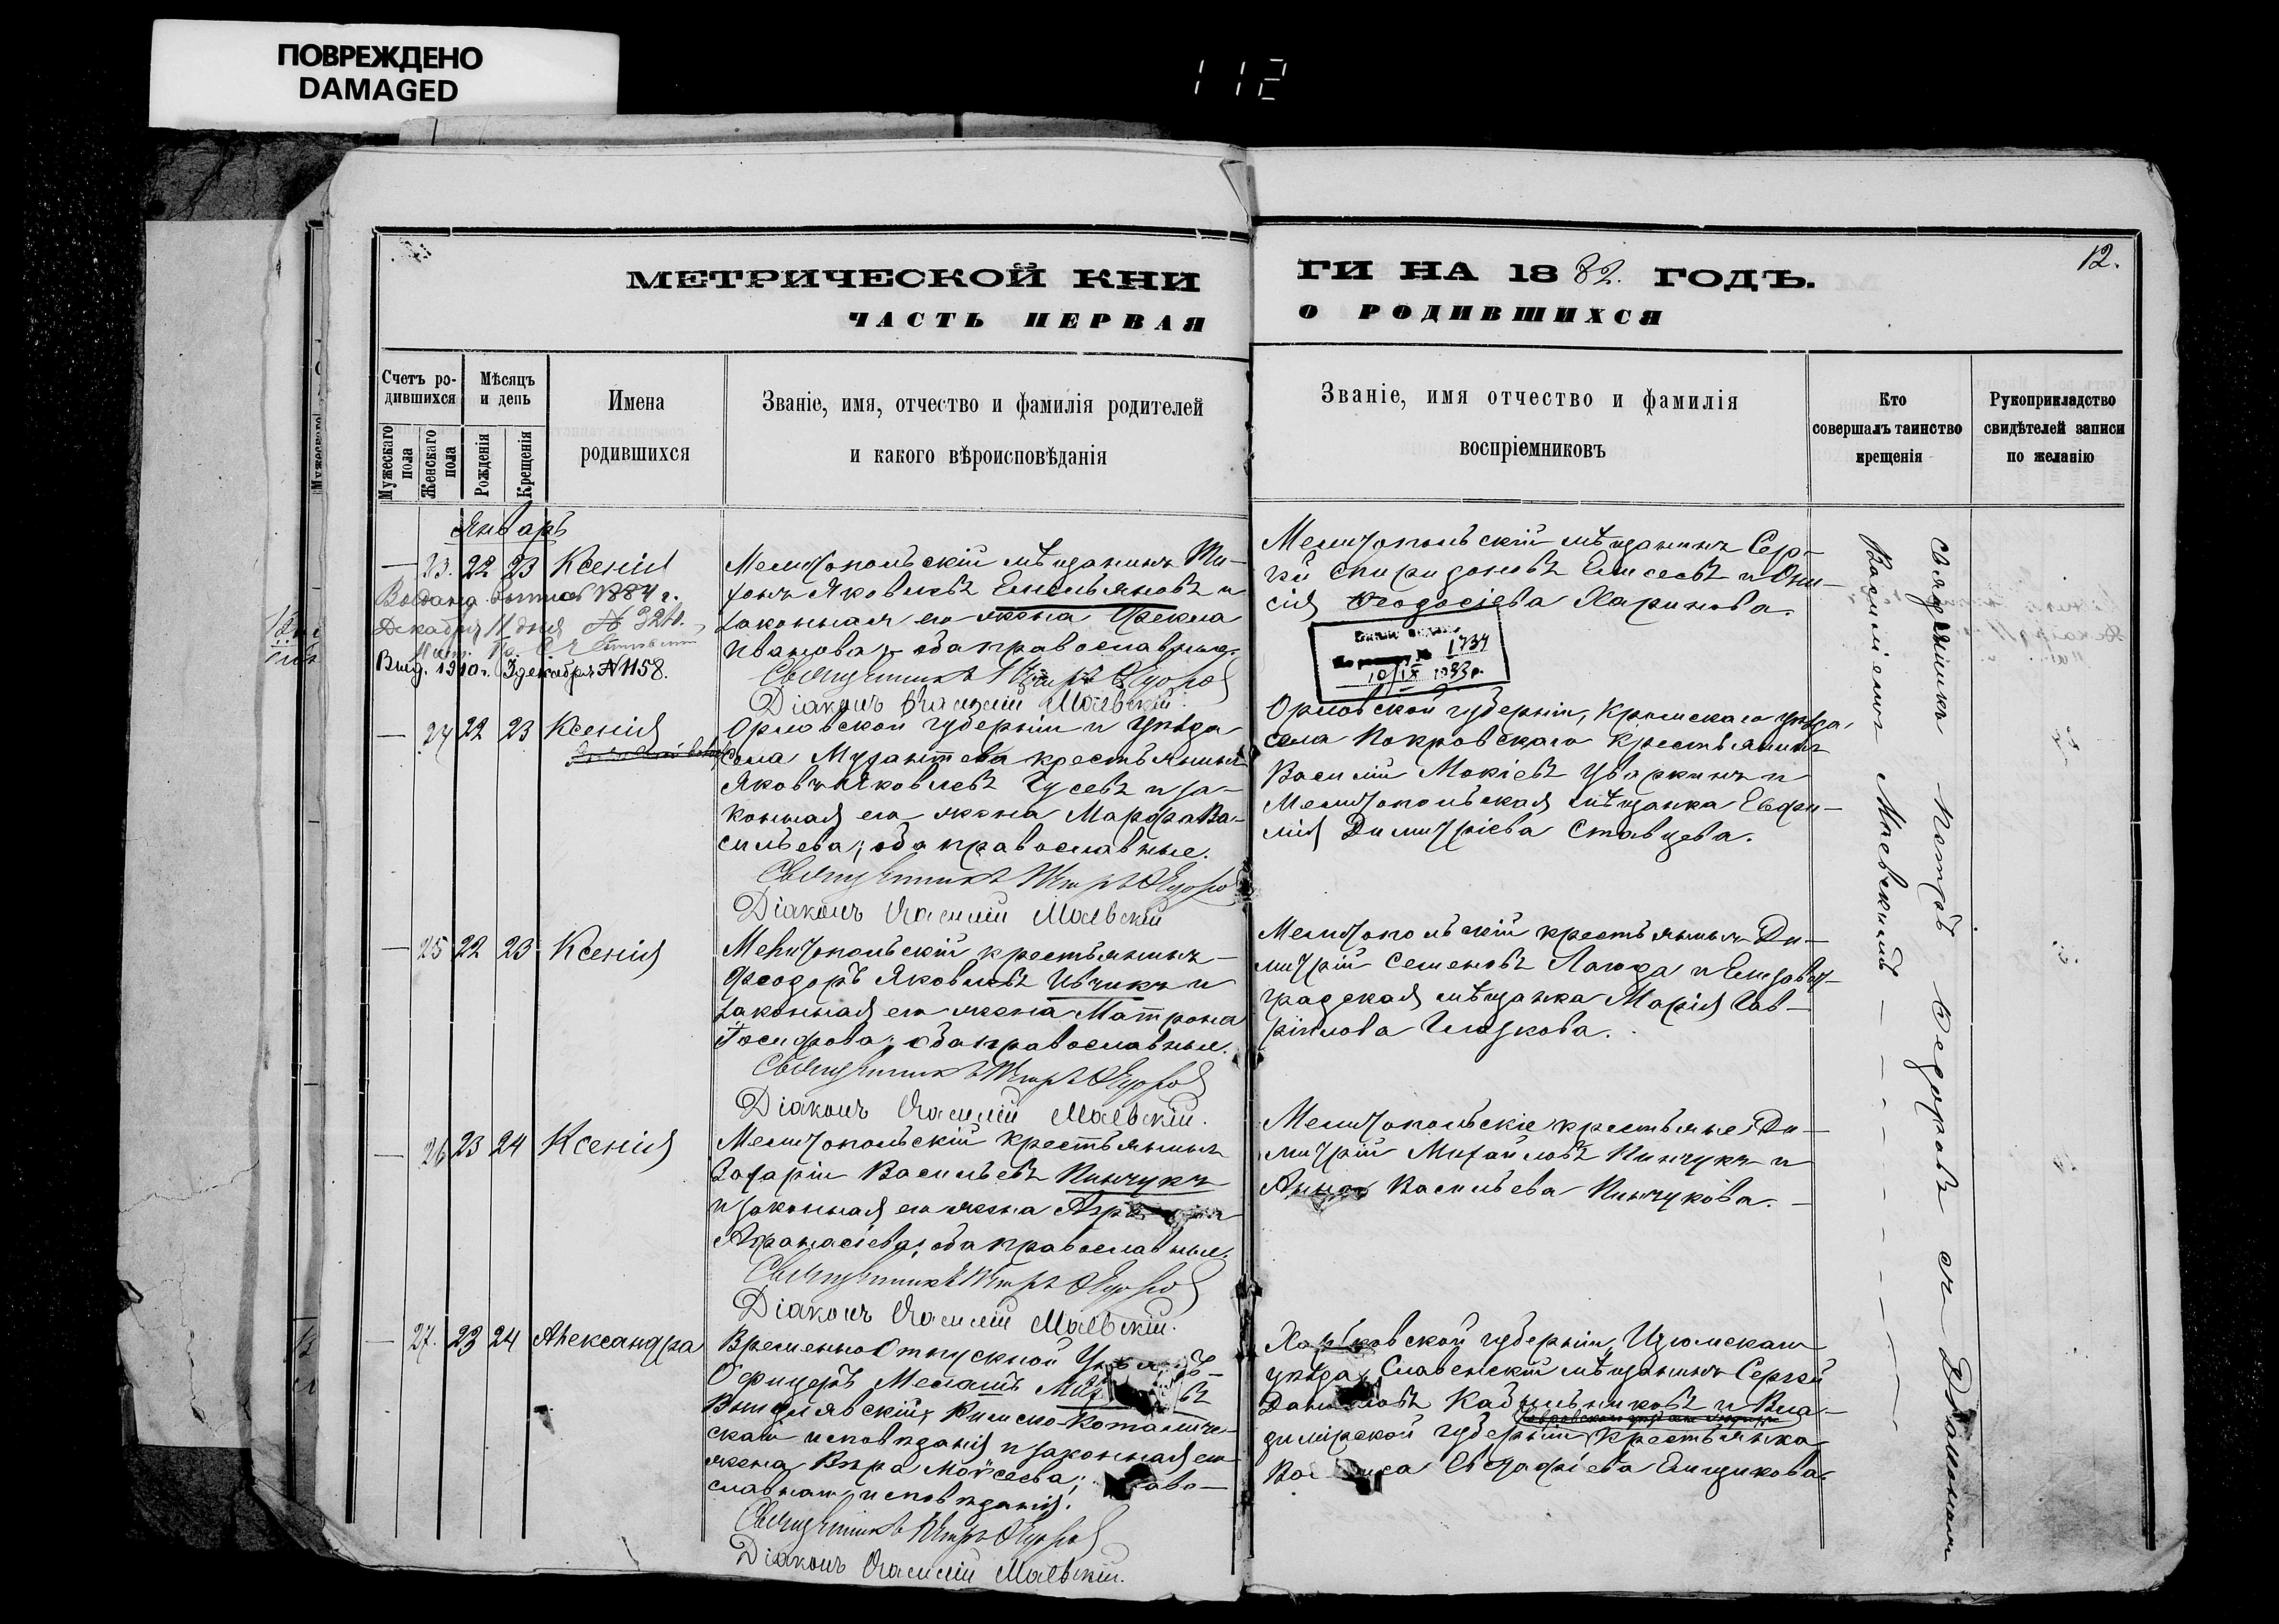 ПОВРЕЖДЕНО
DAMAGED
112
МЕТРИЧЕСКОЙ КНИ
ГИ НА 1882. ГОДЪ.
12.
ЧАСТЬ ПЕРВАЯ
О РОДИВШИХСЯ
Счетъ ро-
дившихся
Мужескаго пола
Женскаго пола
Мѣсяцъ
и день
Рожденія
Крещенія
Имена
родившихся
Званіе, имя, отчество и фамилія родителей
и какого вѣроисповѣданія
Званіе, имя отчество и фамилія
воспріемниковъ
Кто
совершалъ таинство
крещенія
Рукоприкладство
свидѣтелей записи
по желанію
Январь
— 23. 22 23 Ксенія
1884 г.
Декабря 11 дня № 324.
Выд. 1910 г. 3 декабря № 1158.
Мелитопольскій мѣщанинъ Ти-
хонъ Яковлевъ Емельяновъ и
законная его жена Фекла
Иванова, оба православные.
Священникъ Петръ Ѳедоров
Діаконъ Василій Маевскій.
Мелитопольскій мѣщанинъ Сер-
гѣй Спиридоновъ Елисеевъ и Они-
сія Ѳеодосіева Харинова.
1734
10/IX 1933 г.
— 24 22 23 Ксенія
Орловской губерніи и уѣзда
села крестьянинъ
Яковъ Яковлевъ Гусевъ и за-
конная его жена Марфа Ва-
сильева; оба православные.
Священникъ Петръ Ѳедоров
Діаконъ Василій Маевскій
Орловской губерніи, Кромскаго уѣзда,
села Покровскаго крестьянинъ
Василій Мокіевъ Уваркинъ и
Мелитопольская мѣщанка Евфи-
мія Димитріева Ставцева.
— 25 22 23 Ксенія
Мелитопольскій крестьянинъ
Ѳеодоръ Яковлевъ Ивчикъ и
законная его жена Матрона
Іосифова; оба православные.
Священникъ Петръ Ѳедоров
Діаконъ Василій Маевскій.
Мелитопольскій крестьянинъ Ди-
митрій Семеновъ Лагода и Елизавет-
градская мѣщанка Марія Гав-
ріилова Глазкова.
— 26 23 24 Ксенія
Мелитопольскій крестьянинъ
Захарій Васильевъ Пинчукъ
и законная его жена
Афанасіева; оба православные.
Священникъ Петръ Ѳедоров
Діаконъ Василій Маевскій.
Мелитопольскіе крестьяне: Ди-
митрій Михайловъ Пинчукъ и
Анна Васильева Пинчукова. —
— 27. 23 24 Александра
Временно отпускной Унтеръ-
Офицеръ
Римско-Католиче-
скаго исповѣданія и законная его
жена Вѣра Мойсеева; право-
славнаго исповѣданія.
Священникъ Петръ Ѳедоров
Діаконъ Василій Маевскій.
Харьковской губерніи, Изюмскаго
уѣзда, Славенскій мѣщанинъ Сергѣй
Даниловъ Кадильниковъ и Вла-
димірской губерніи крестьянка
Евстафіева Емщикова.
Священникъ Петръ Ѳедоровъ съ Діакономъ
Василіемъ Маевскимъ